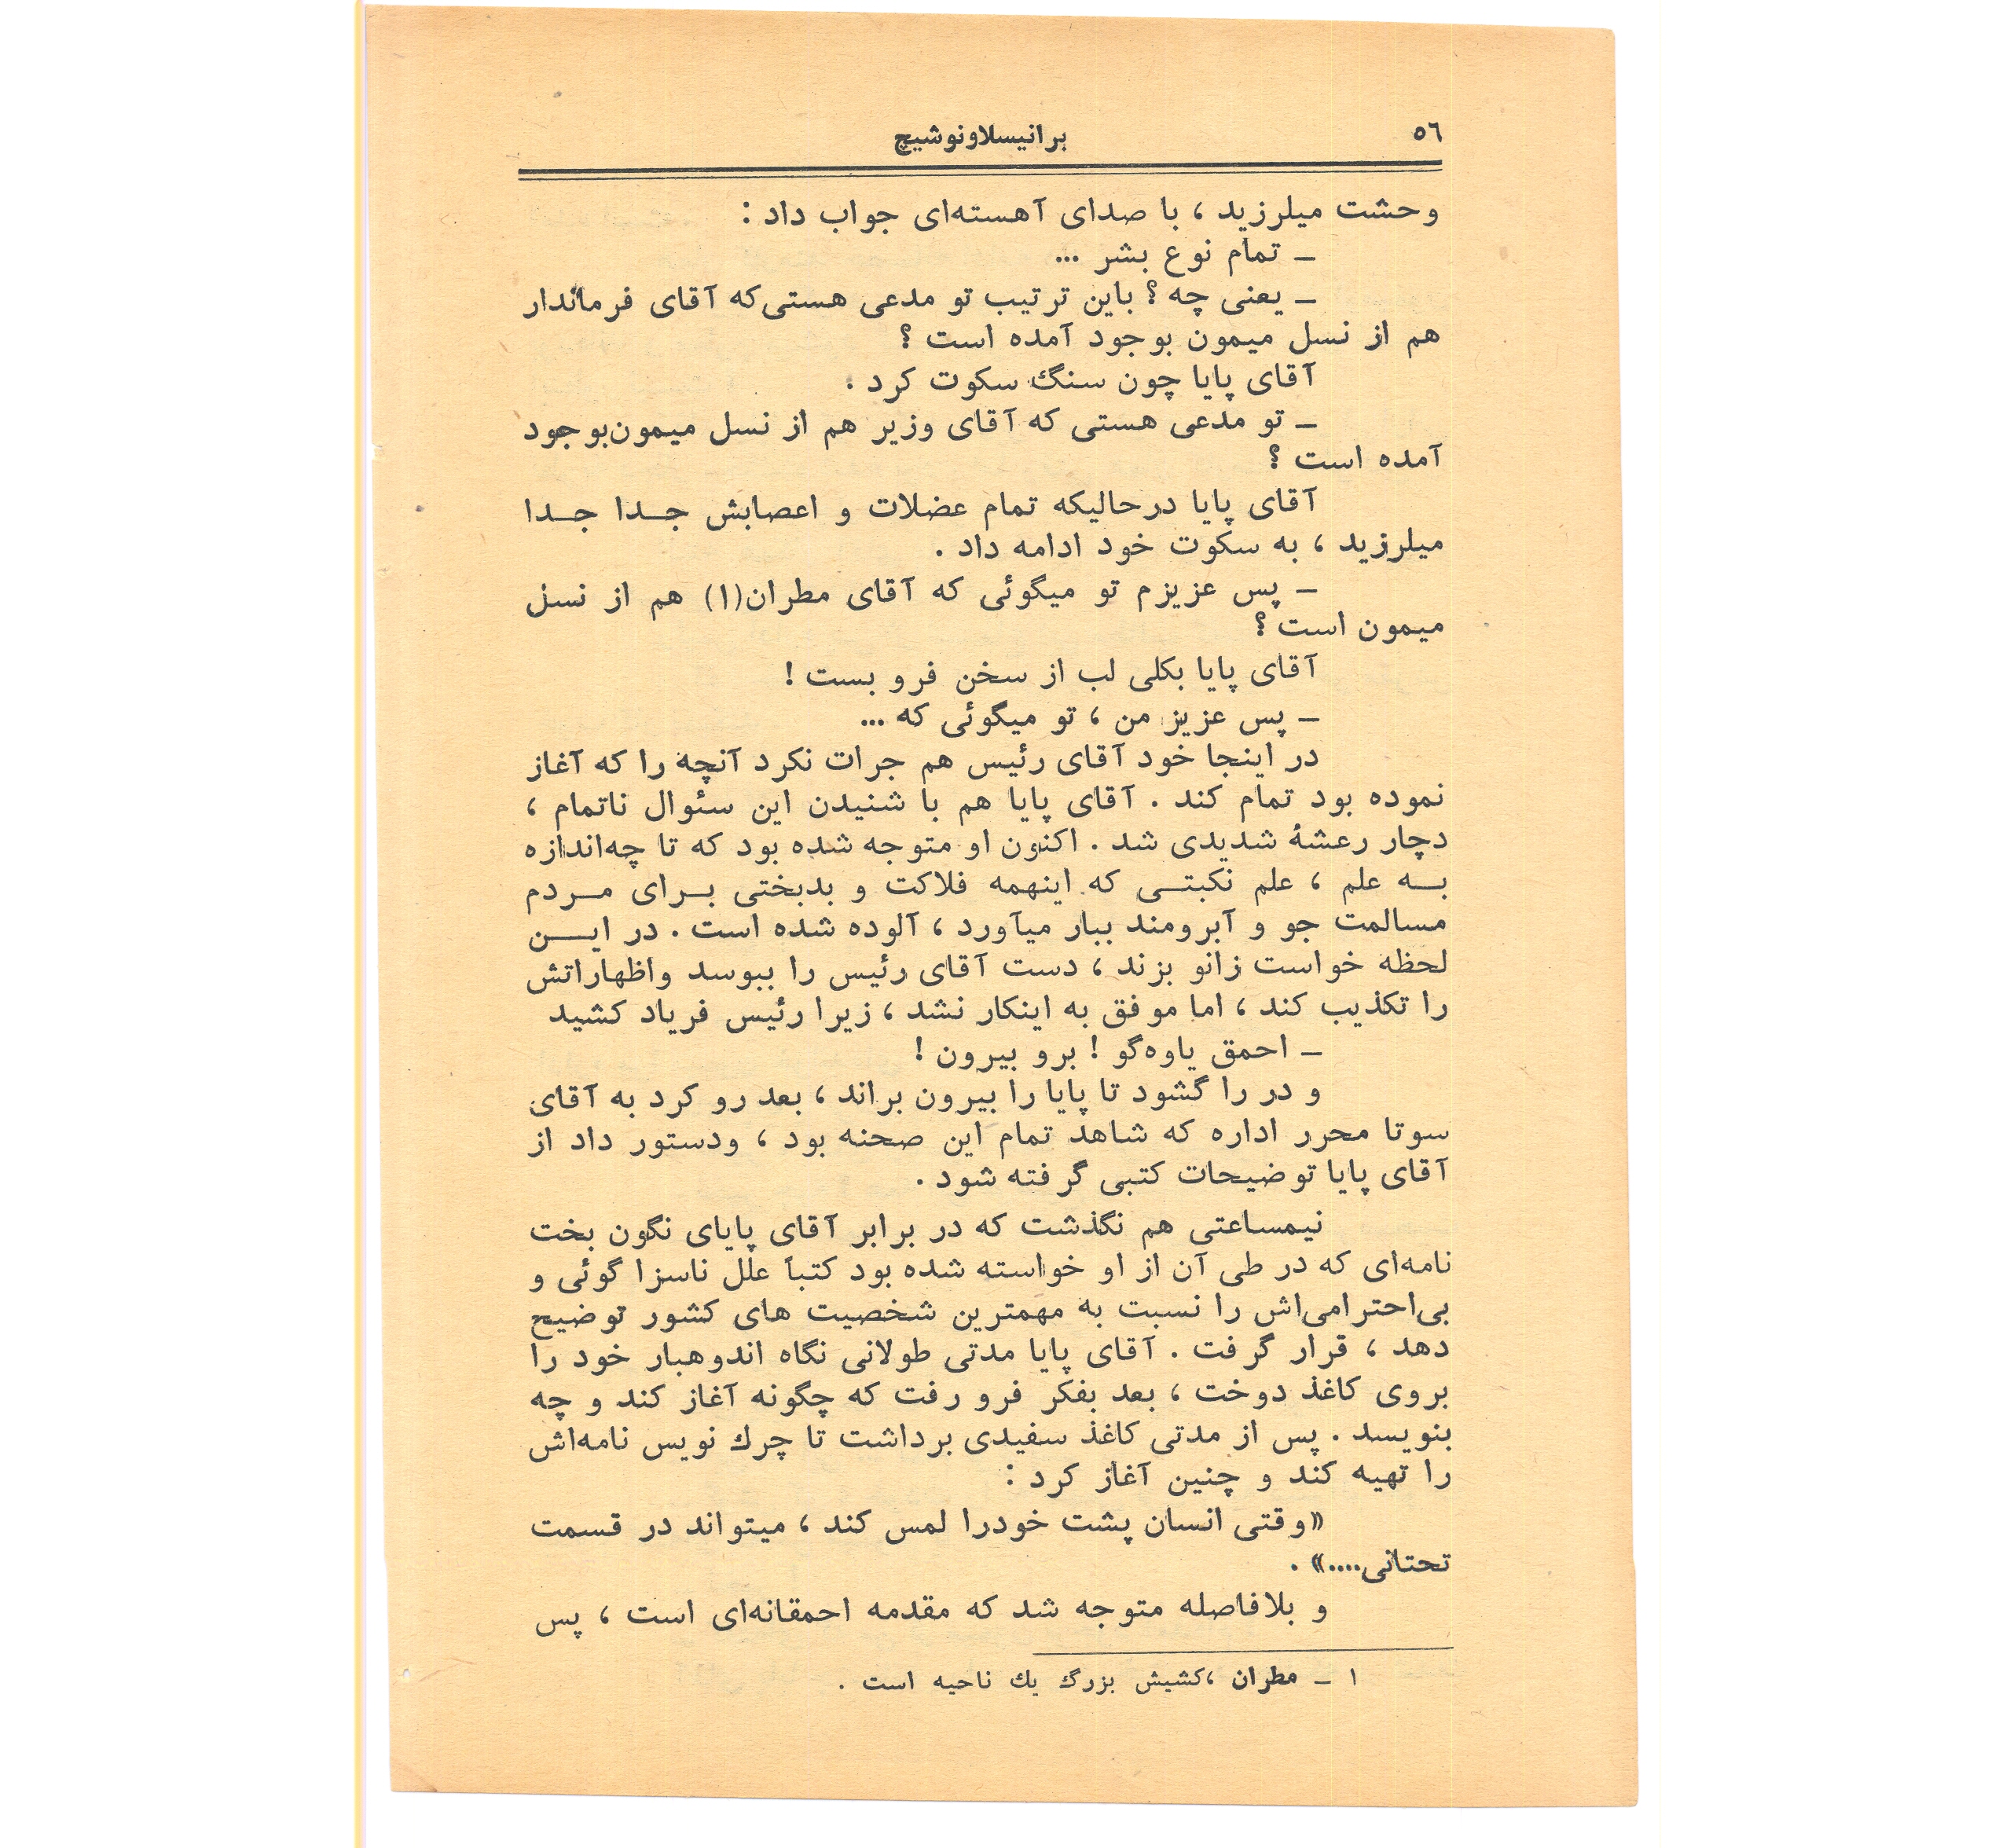 ٥٦
برانیسلاونوشیچ
وحشت میلرزید ، با صدای آهسته‌ای جواب داد :
ـ تمام نوع بشر ...
ـ یعنی چه ؟ باین ترتیب تو مدعی هستی‌که آقای فرماندار
هم از نسل میمون بوجود آمده است ؟
آقای پایا چون سنگ سکوت کرد .
ـ تو مدعی هستی که آقای وزیر هم از نسل میمون‌بوجود
آمده است ؟
آقای پایا درحالیکه تمام عضلات و اعصابش جـدا جـدا
میلرزید ، به سکوت خود ادامه داد .
ـ پس عزیزم تو میگوئی که آقای مطران(۱) هم از نسل
میمون است ؟
آقای پایا بکلی لب از سخن فرو بست !
ـ پس عزیز من ، تو میگوئی که ...
در اینجا خود آقای رئیس هم جرات نکرد آنچه را که آغاز
نموده بود تمام کند . آقای پایا هم با شنیدن این سئوال ناتمام ،
دچار رعشهٔ شدیدی شد . اکنون او متوجه شده بود که تا چه‌اندازه
بـه علم ، علم نکبتـی که اینهمه فلاکت و بدبختی بـرای مـردم
مسالمت جو و آبرومند ببار میآورد ، آلوده شده است . در ایـن
لحظه خواست زانو بزند ، دست آقای رئیس را ببوسد واظهاراتش
را تکذیب کند ، اما موفق به اینکار نشد ، زیرا رئیس فریاد کشید
ـ احمق یاوه‌گو ! برو بیرون !
و در را گشود تا پایا را بیرون براند ، بعد رو کرد به آقای
سوتا محرر اداره که شاهد تمام این صحنه بود ، ودستور داد از
آقای پایا توضیحات کتبی گرفته شود .
نیمساعتی هم نگذشت که در برابر آقای پایای نگون بخت
نامه‌ای که در طی آن از او خواسته شده بود کتباً علل ناسزا گوئی و
بی‌احترامی‌اش را نسبت به مهمترین شخصیت های کشور توضیح
دهد ، قرار گرفت . آقای پایا مدتی طولانی نگاه اندوهبار خود را
بروی کاغذ دوخت ، بعد بفکر فرو رفت که چگونه آغاز کند و چه
بنویسد . پس از مدتی کاغذ سفیدی برداشت تا چرك نویس نامه‌اش
را تهیه کند و چنین آغاز کرد :
«وقتی انسان پشت خودرا لمس کند ، میتواند در قسمت
تحتانی....» .
و بلافاصله متوجه شد که مقدمه احمقانه‌ای است ، پس
۱ ـ مطران ،کشیش بزرگ یك ناحیه است .